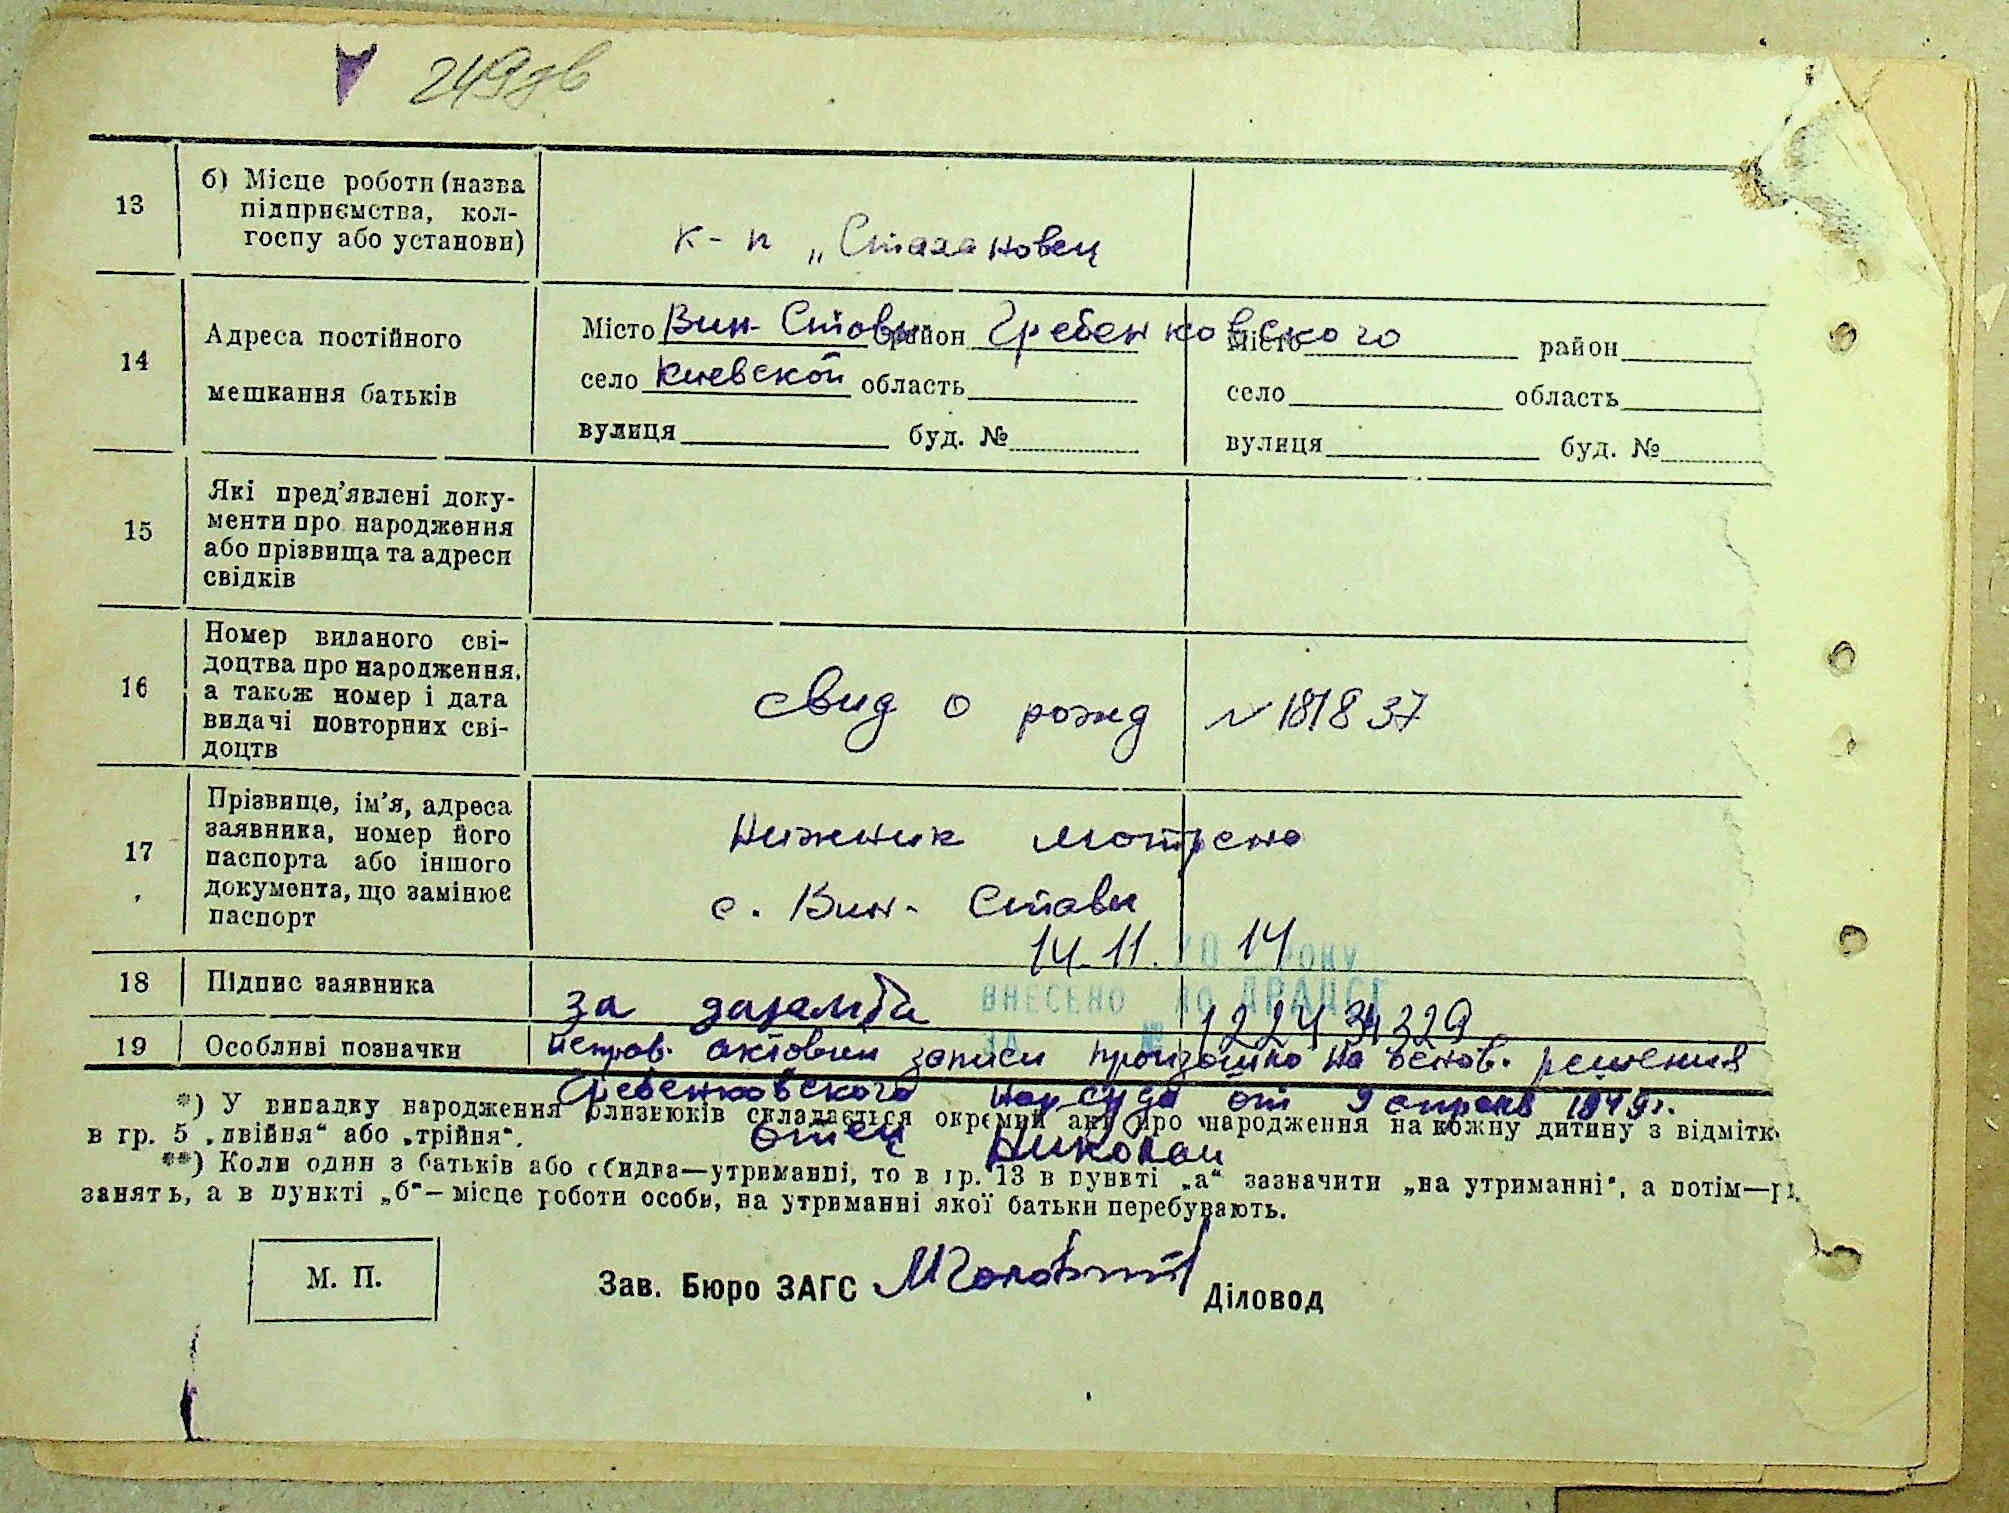 249зв
13
б) Місце роботи (назва
підприємства, кол-
госпу або установи)
к-п „Стахановец
14
Адреса постійного
мешкання батьків
Місто Вин-Ставы район Гребенковского
село Киевской область
вулиця буд. №
Місто район
село область
вулиця буд. №
15
Які пред'явлені доку-
менти про народження
або прізвища та адреси
свідків
16
Номер виданого сві-
доцтва про народження,
а також номер і дата
видачі повторних сві-
доцтв
свид о рожд № 181837
17
Прізвище, ім'я, адреса
заявника, номер його
паспорта або іншого
документа, що замінює
паспорт
Нижник Мотрена
с. Вин- Ставы
14.11. 20 14 РОКУ
18
Підпис заявника
за
ВНЕСЕНО ДО ДРАЦСГ
ЗА №
19
Особливі позначки
исправ. актовии записи произошло на основ. решения
Гребенковского нарсуда от 9 апреля 1949г.
отец Николай
*) У випадку народження близнюків складається окремий акт про народження на кожну дитину з відмітк
в гр. 5 „двійня“ або „трійня“.
**) Коли один з батьків або обидва—утриманці, то в гр. 13 в пункті „а“ зазначити „на утриманні“, а потім—
занять, а в пункті „б“—місце роботи особи, на утриманні якої батьки перебувають.
М. П.
Зав. Бюро ЗАГС
Діловод